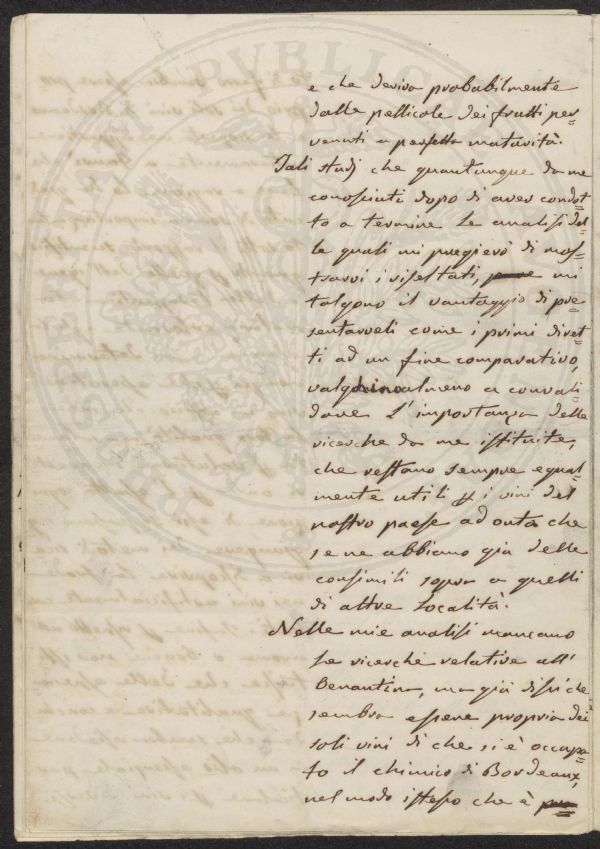 e che deriva probabilmente
dalle pellicole dei frutti per=
venuti a perfetta maturità.
Tali studj che quantunque da me
conosciuti dopo di aver condot=
to a termine le analisi dal=
le quali mi pregierò di mos=
trarvi i risultati, pure mi
tolgono il vantaggio di pre=
sentarveli come i primi diret=
ti ad un fine comparativo,
valgono almeno a convali=
dare l'importanza delle
ricerche da me istituite,
che restano sempre egual=
mente utili pei vini del
nostro paese ad onta che
se ne abbiano già delle
consimili sopra a quelli
di altre località.
Nelle mie analisi mancano
le ricerche relative all'
Oenantina, ma già dissi che
sembra essere propria dei
soli vini di che si è occupa=
to il chimico di Bordeaux,
nel modo istesso che è